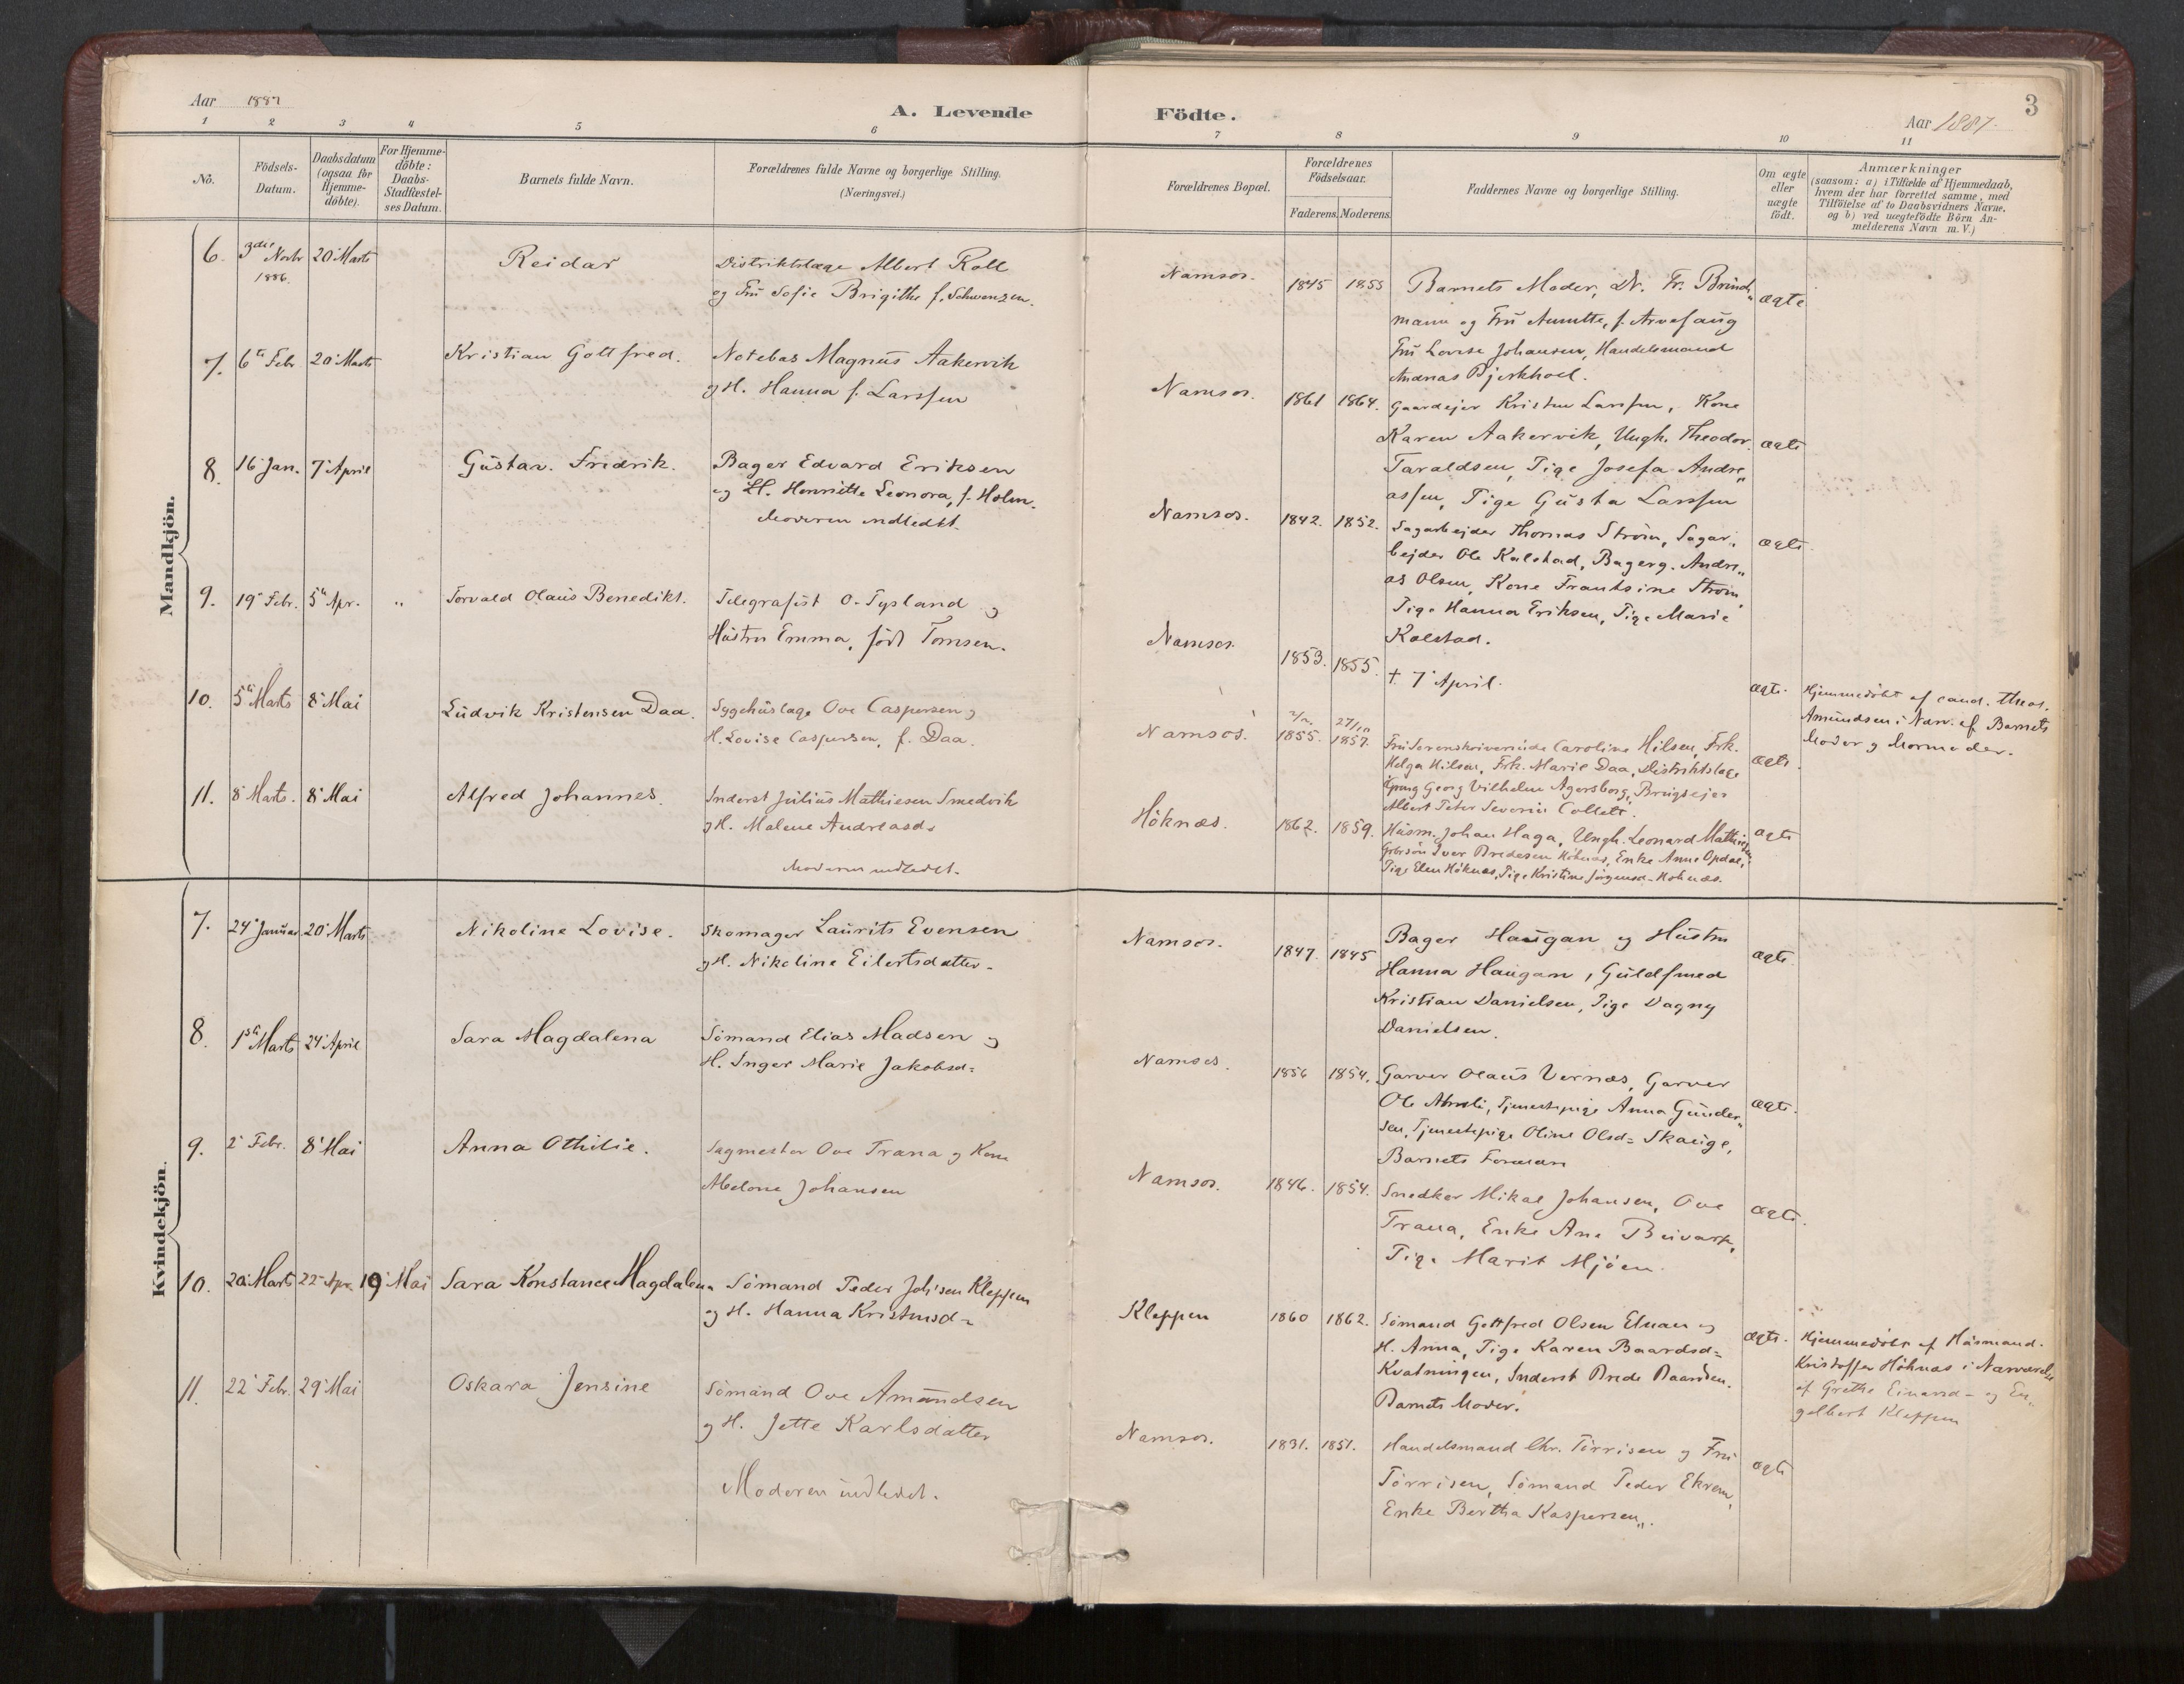 Aar 1887
A. Levende
1 2 3 4 5 6
Nö.
Födsels-
Datum.
Daabsdatum
(ogsaa for
Hjemme-
döbte).
For Hjemme-
döbte:
Daabs-
Stadfæstel-
ses Datum.
Barnets fulde Navn.
Forældrenes fulde Navne og borgerlige Stilling.
(Næringsvei.)
Mandkjön.
6. 3die Novbr 20 Marts Reidar Distriktslæge Albert Roll
1886. og Fru Sofie Brigitte f. Schwenzen.
7. 6te Febr 20 Marts Kristian Gottfred. Notebas Magnus Aakervik
og H. Hanna f. Larssen
8. 16 Jan. 7 April Gustav. Fredrik. Bager Edvard Eriksen
og H. Henriette Leonora, f. Holm.
Moderen indledet.
9. 19 Febr. 5te Apr. " Torvald Olaus Benedikt. Telegrafist O. Tysland og
Hustru Emma, född Tomsen.
10. 5te Marts 8 Mai Ludvik Kristensen Daa. Sygehuslæge Ove Caspersen og
H. Lovise Caspersen, f. Daa.
11. 8 Marts. 8 Mai Alfred Johannes. Inderst Julius Mathiesen Smedvik
og H. Malene Andreasd.
Moderen indledet.
Kvindekjön.
7. 24 Januar 20 Marts Nikoline Lovise. Skomager Laurits Evensen
og H. Nikoline Eilertsdatter.
8. 1ste Marts 24 April Sara Magdalena Sömand Elias Madsen og
H. Inger Marie Jakobsd=
9. 2 Febr. 8 Mai Anna Othilie. Sagmester Ove Trana og Kone
Melone Johansen
10. 20 Marts 22 Apr. 19 Mai Sara Konstance Magdalena Sömand Peder Joh'sen Kleppen
og H. Hanna Kristensd=
11. 22 Febr. 29 Mai Oskara Jensine Sömand Ove Amundsen
og H. Jette Karlsdatter
Moderen indledet.
Födte.
Aar 1887. 3
7 8 9 10 11
Forældrenes Bopæl.
Forældrenes
Födselsaar.
Faderens. Moderens.
Faddernes Navne og borgerlige Stilling.
Om ægte
eller
uægte
födt.
Anmærkninger
(saasom: a) i Tilfælde af Hjemmedaab,
hvem der har forrettet samme, med
Tilföielse af to Daabsvidners Navne.
og b) ved uægtefödte Börn An-
melderens Navn m. V.)
Namsos. 1845 1855 Barnets Moder, Dr. Fr. Brinch„ ægte
mann og Fru Annette, f. Arvesaug
Fru Lovise Johansen, Handelsmand
Andreas Bjerkhoel.
Namsos. 1861 1864. Gaardejer Kristen Larssen, Kone
Karen Aakervik, Ungk. Theodor ægte
Taraldsen, Pige Josefa Andre„
assen, Pige Gusta Larssen
Namsos. 1842. 1852. Sagarbejder Thomas Ström, Sagar„ ægte
bejder Ole Kalstad, Bagerg. Andre„
as Olsen, Kone Frantsine Ström,
Pige Hanna Eriksen, Pige Marie
Kalstad.
Namsos. 1853. 1855. † 7 April. ægte. Hjemmedöbt af cand. theol.
Amundsen i Närv. af Barnets
Moder og Mormoder.
Namsos. 1855. 27/10 1857. Fru Sorenskriverinde Caroline Hilsen, Frk.
Helga Hilsen, Frk. Marie Daa, Distriktslæge ægte.
Georg Vilhelm Agersborg, Brugsejer
Albert Peter Severin Collett.
Höknæs. 1862. 1859. Husm. Johan Haga, Ungk. Leonard Mathiesen, ægte
Grbrsön Iver Bredesen Höknæs, Enke Anne Opdal,
Pige Elen Höknæs, Pige Kristine Jörgensd= Höknæs.
Namsos. 1847. 1845 Bager Haugan og Hustru ægte.
Hanna Haugan, Guldsmed
Kristian Danielsen, Pige Dagny
Danielsen.
Namsos. 1856 1854. Garver Olaus Vernæs, Garver
Ole, Tjenestepige Anna Gunder„ ægte.
sen, Tjenestepige Oline Olsd= Skauge,
Barnets
Namsos. 1846. 1854. Snedker Mikal Johansen, Ove ægte.
Trana, Enke Ane
Pige Marit Mjöen.
Kleppen 1860 1862. Sömand Gottfred Olsen Elnan og ægte. Hjemmedöbt af Husmand
H. Anna, Pige Karen Baardsd= Kristoffer Höknæs i Nærværelse
Kvatningen, Inderst Brede Baardsen. af Grethe Einarsd= og En„
Barnets Moder. gelbert Kleppen
Namsos. 1831. 1851. Handelsmand Chr. Törrisen og Fru ægte
Törrisen, Sömand Peder Ekrem,
Enke Bertha Kaspersen„.